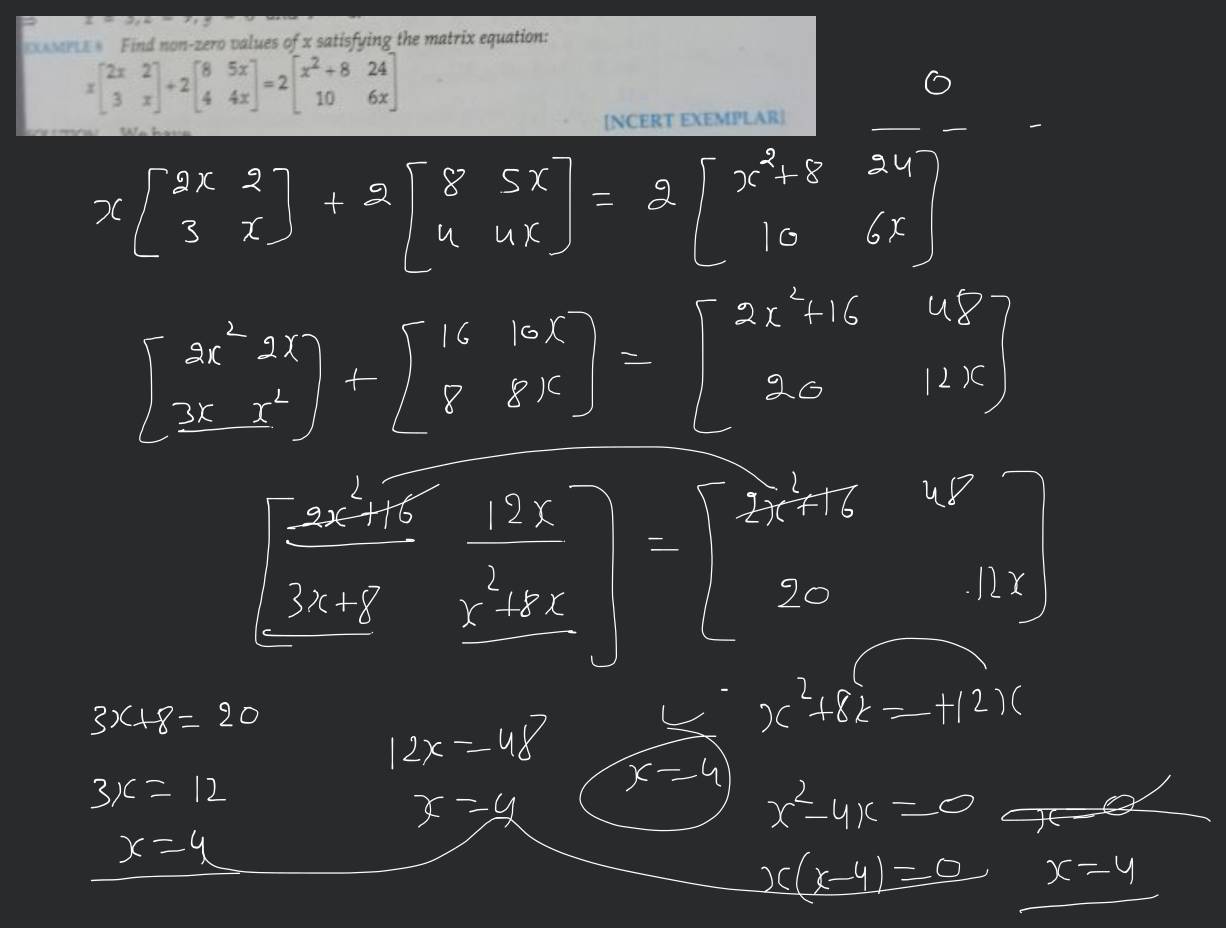 EXAMPLE 6 Find non-zero values of x satisfying the matrix equation:
x [2x 2; 3 x] + 2 [8 5x; 4 4x] = 2 [x² + 8 24; 10 6x]
[NCERT EXEMPLAR]
We have
0
x [2x 2; 3 x] + 2 [8 5x; 4 4x] = 2 [x²+8 24; 10 6x]
[2x² 2x; 3x x²] + [16 10x; 8 8x] = [2x²+16 48; 20 12x]
[2x²+16 12x; 3x+8 x²+8x] = [2x²+16 48; 20 12x]
3x+8=20
3x=12
x=4
12x=48
x=4
x=4
x²+8x=+12x
x²-4x=0
x(x-4)=0
x=0
x=4